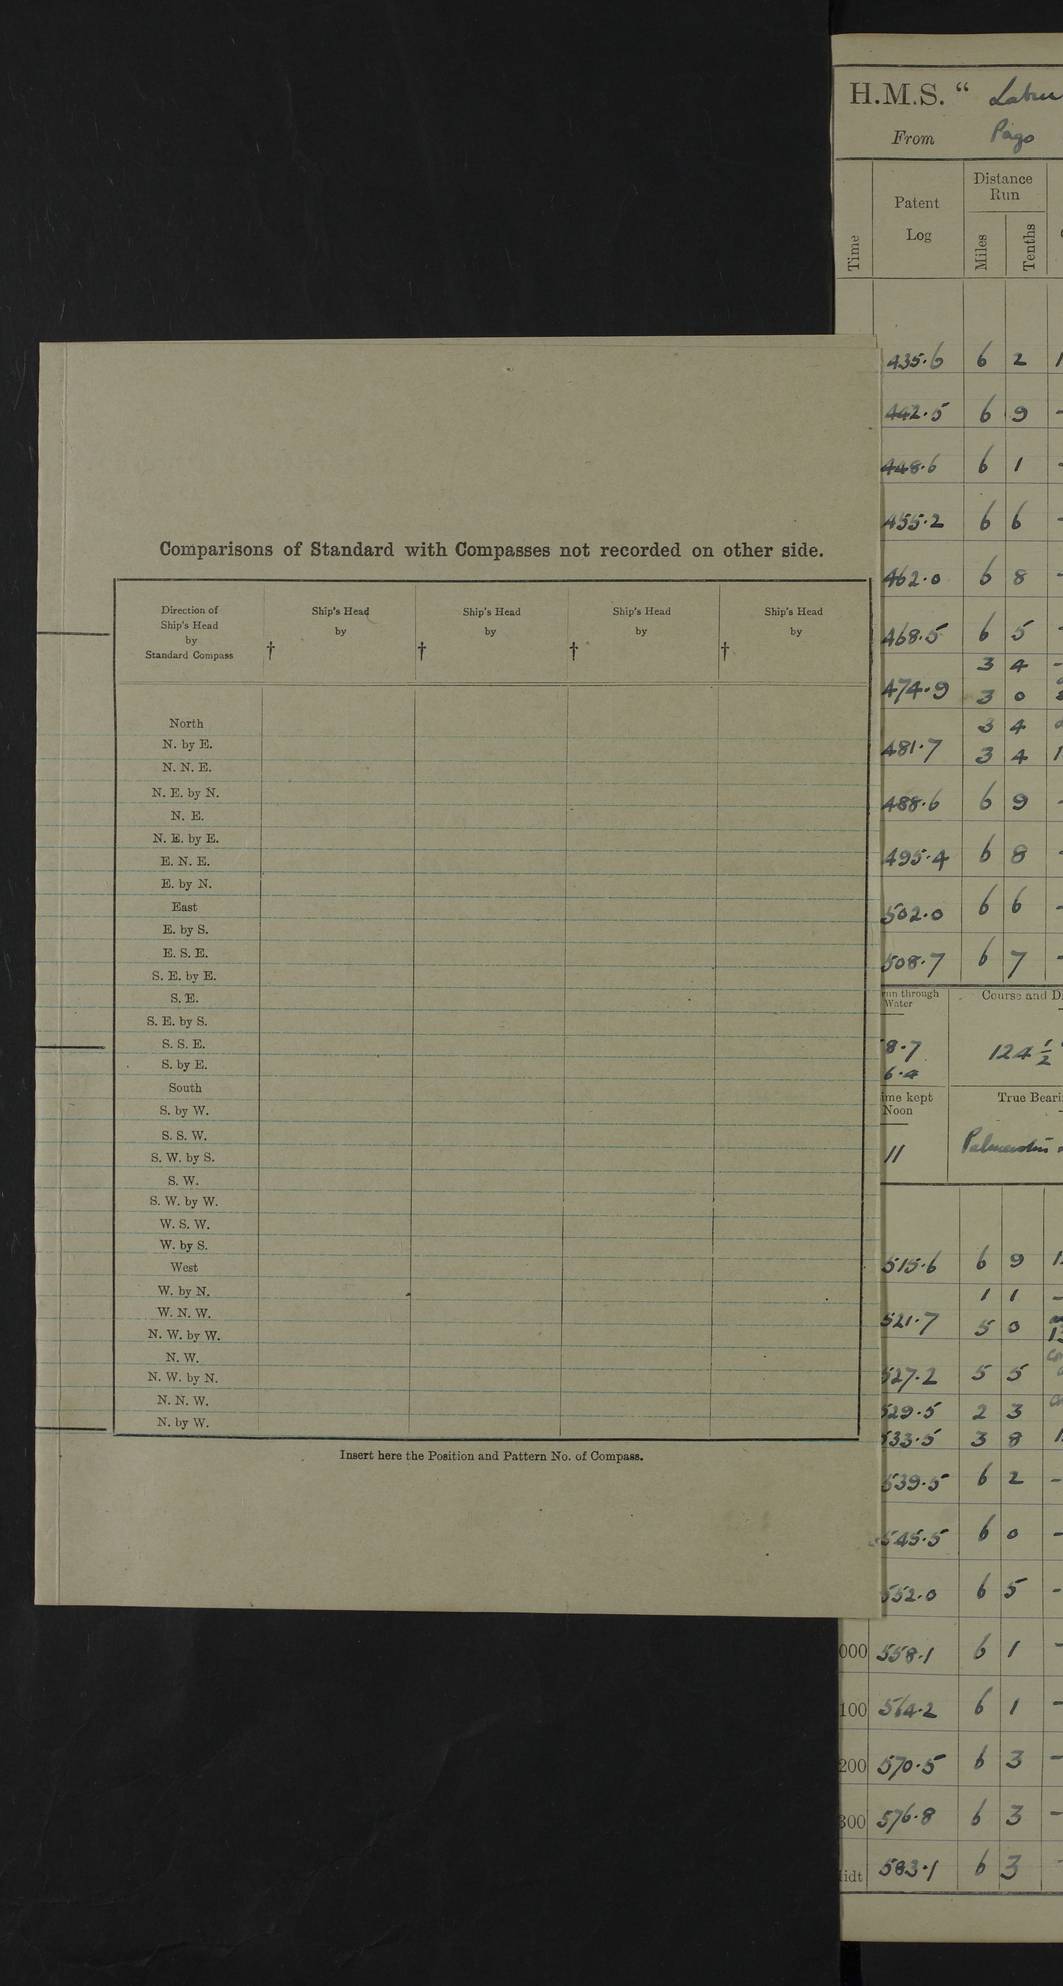 Comparisons of Standard with Compasses not recorded on other side.
Direction of
Ship's Head
by
Standard Compass
Ship's Head
by
†
Ship's Head
by
†
Ship's Head
by
†
Ship's Head
by
†
North
N. by E.
N. N. E.
N. E. by N.
N. E.
N. E. by E.
E. N. E.
E. by N.
East
E. by S.
E. S. E.
S. E. by E.
S. E.
S. E. by S.
S. S. E.
S. by E.
South
S. by W.
S. S. W.
S. W. by S.
S. W.
S. W. by W.
W. S. W.
W. by S.
West
W. by N.
W. N. W.
N. W. by W.
N. W.
N. W. by N.
N. N. W.
N. by W.
Insert here the Position and Pattern No. of Compass.
H.M.S. “
From Pago
Time
Patent
Log
Distance
Run
Miles
Tenths
435.6 6 2
442.5 6 9
448.6 6 1
455.2 6 6
462.0 6 8
468.5 6 5
3 4
474.9 3 0
3 4
481.7 3 4
488.6 6 9
495.4 6 8
502.0 6 6
508.7 6 7
run through
Water
Course and D
8.7
6.4
124 1/2
ime kept
Noon
True Beari
11
515.6 6 9
1 1
521.7 5 0
527.2 5 5
529.5 2 3
533.5 3 8
539.5 6 2
545.5 6 0
552.0 6 5
000 558.1 6 1
100 564.2 6 1
200 570.5 6 3
300 576.8 6 3
idt 583.1 6 3